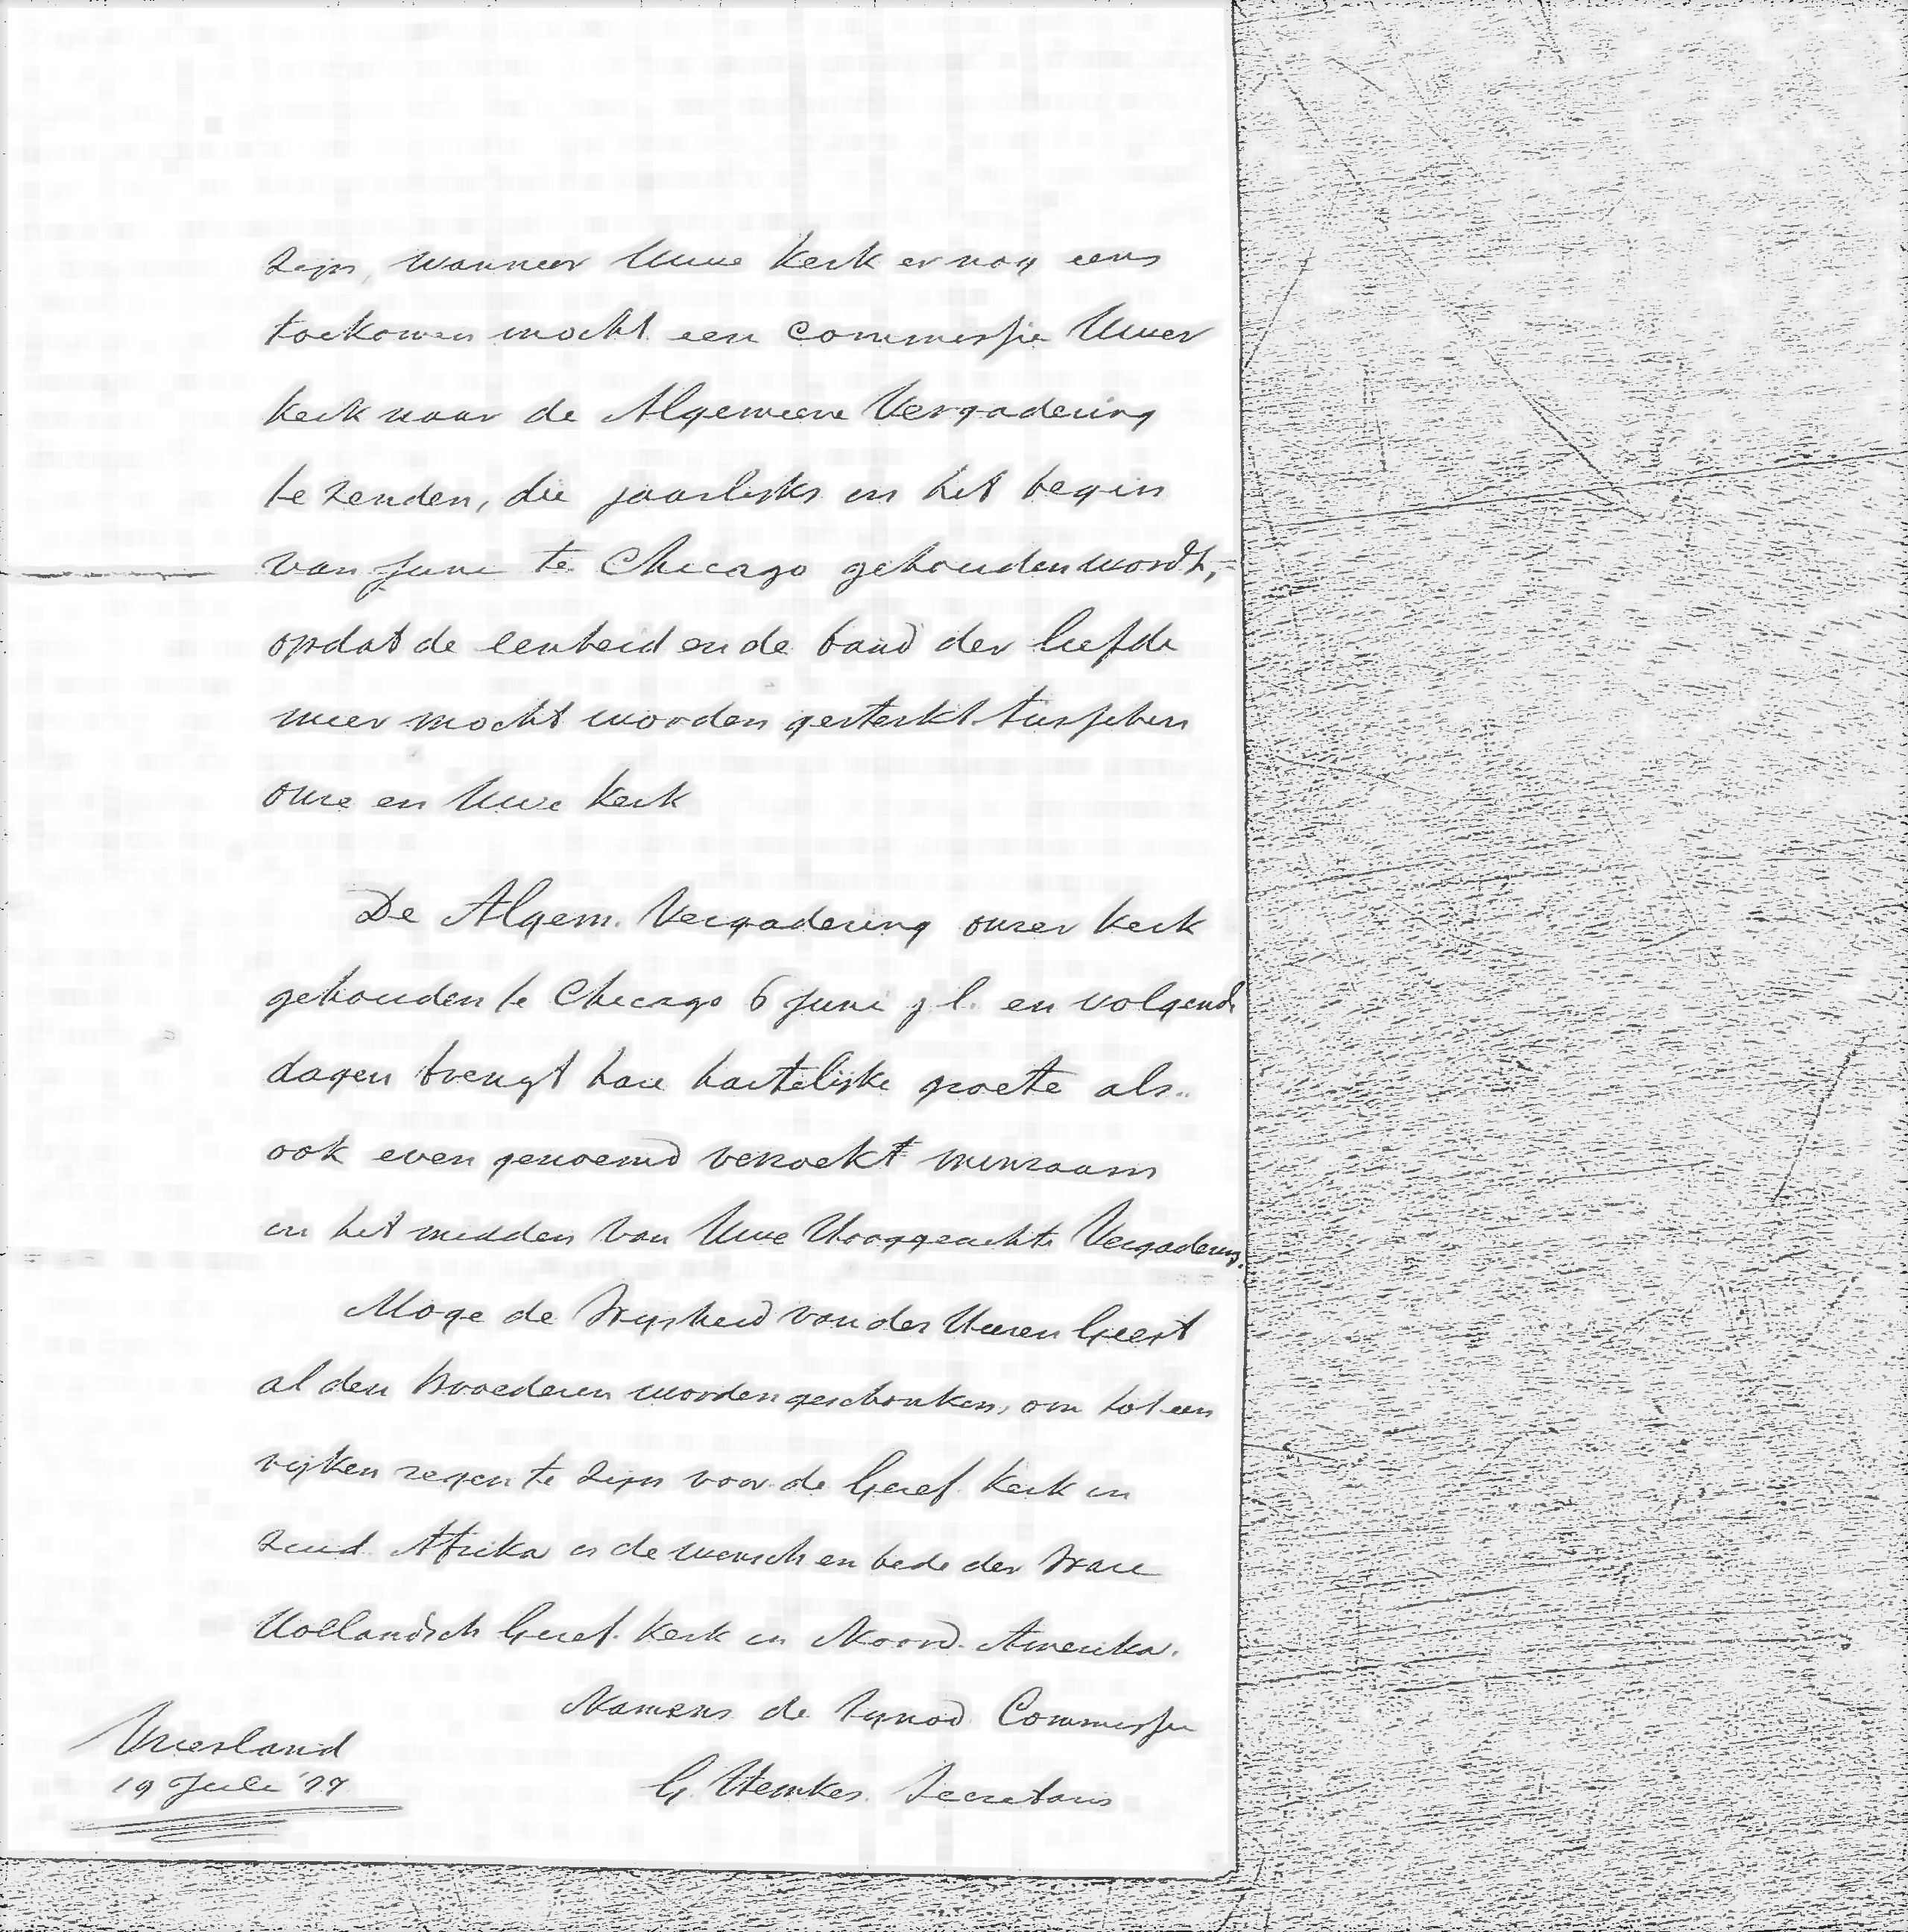 zijn, wanneer Uwe Kerk er nog eens
toekomen mocht een Commissie Uwer
Kerk naar de Algemeene Vergadering
te zenden, die jaarlijks in het begin
van Juni te Chicago gehouden wordt,
opdat de eenheid en de band der liefde
meer mocht worden gesterkt tusschen
onze en Uwe Kerk
De Algem. Vergadering onzer Kerk
gehouden te Chicago 6 Juni j l. en volgende
dagen brengt hare hartelijke groete als
ook even genoemd verzoekt minzaam
in het midden van Uwe Hooggeachte Vergadering.
Moge de Wijsheid van des Heeren Geest
al den Broederen worden geschonken, om tot een
rijken zegen te zijn voor de Geref. Kerk in
Zuid Afrika is de wensch en bede der Ware
Hollandsch Geref. Kerk in Noord-Amerika.
Namens de Synod Commissie
G. Hemkes. Secretaris
Vriesland
19 Juli '77